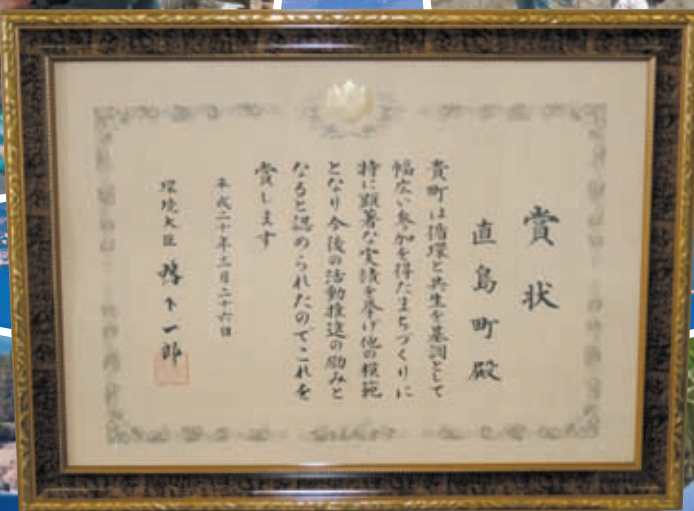 賞状
直島町殿
貴町は循環と共生を基調として
幅広い参加を得たまちづくりに
特に顕著な実績を挙げ他の模範
となり今後の活動推進の励みと
なると認められたのでこれを
賞します
平成二十年三月二十六日
環境大臣 鴨下一郎